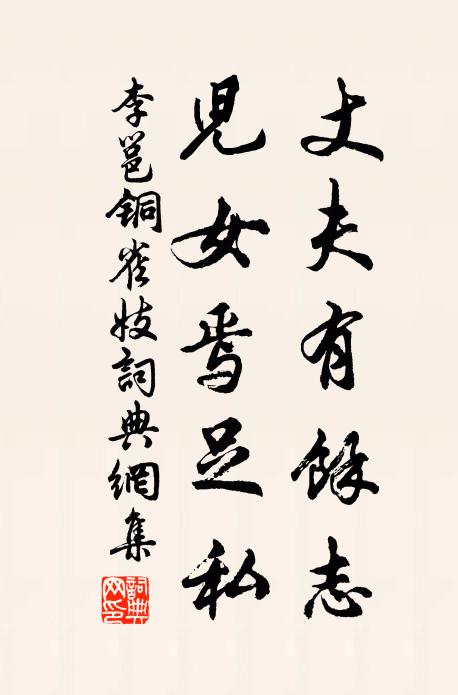 丈夫有餘志
兒女焉足私
李邕銅雀妓詞典網集
詞典網印